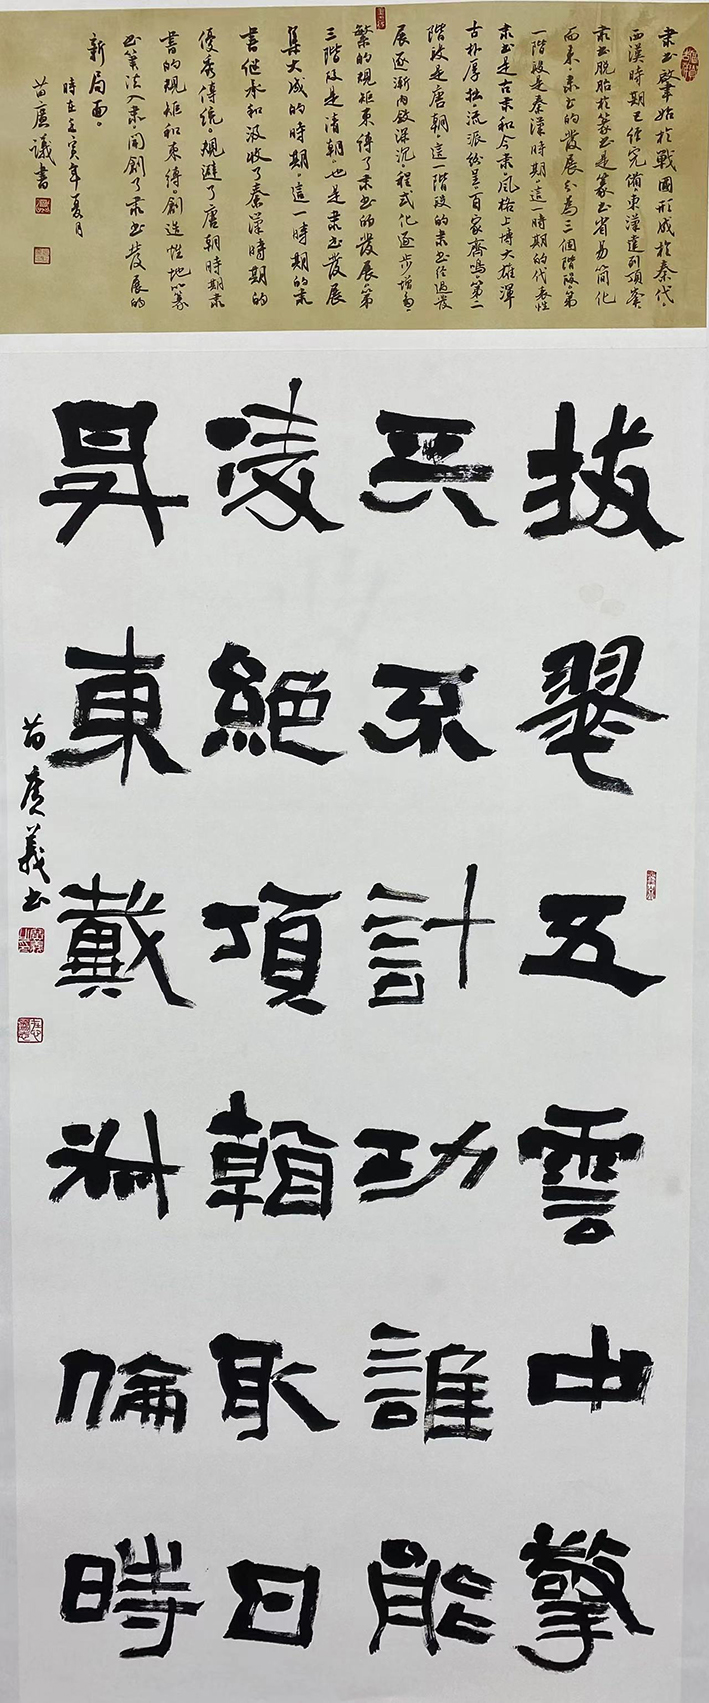 隶书啟肇始於戰國形成於秦代。
西漢時期已經完備。東漢達到頂峯。
隶书脱胎於篆书是篆书省易简化
而来。隶书的發展分為三個階段。第
一階段是秦漢時期。這一時期的代表性
隶书是古隶和今隶。風格上博大雄渾
古朴厚拙流派纷呈。百家齊鳴。第二
階段是唐朝。這一階段的隶书经過發
展逐漸内斂深沉。程式化逐步增多。
繁的規矩束缚了隶书的發展。第
三階段是清朝。也是隶书發展
集大成的時期。這一時期的隶
書继承和汲收了秦漢時期的
優秀傳統。規避了唐朝時期隶
書的規矩和束缚。創造性地以篆
书笔法入隶。開創了隶书發展的
新局面。
時在壬寅年夏月
苗廣議書
拔翠五雲中擎
天不計功誰能
凌絕頂看取日
昇東戴叔倫時
苗廣義书